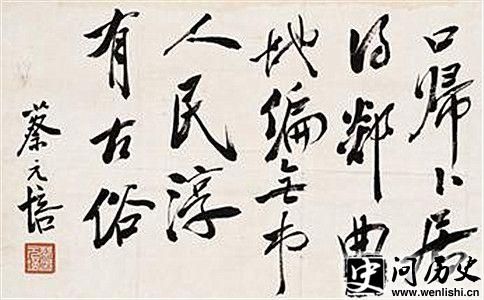 口歸卜居
得鄰曲
地偏無市
人民淳
有古俗
蔡元培
史 问历史
www.wenlishi.cn